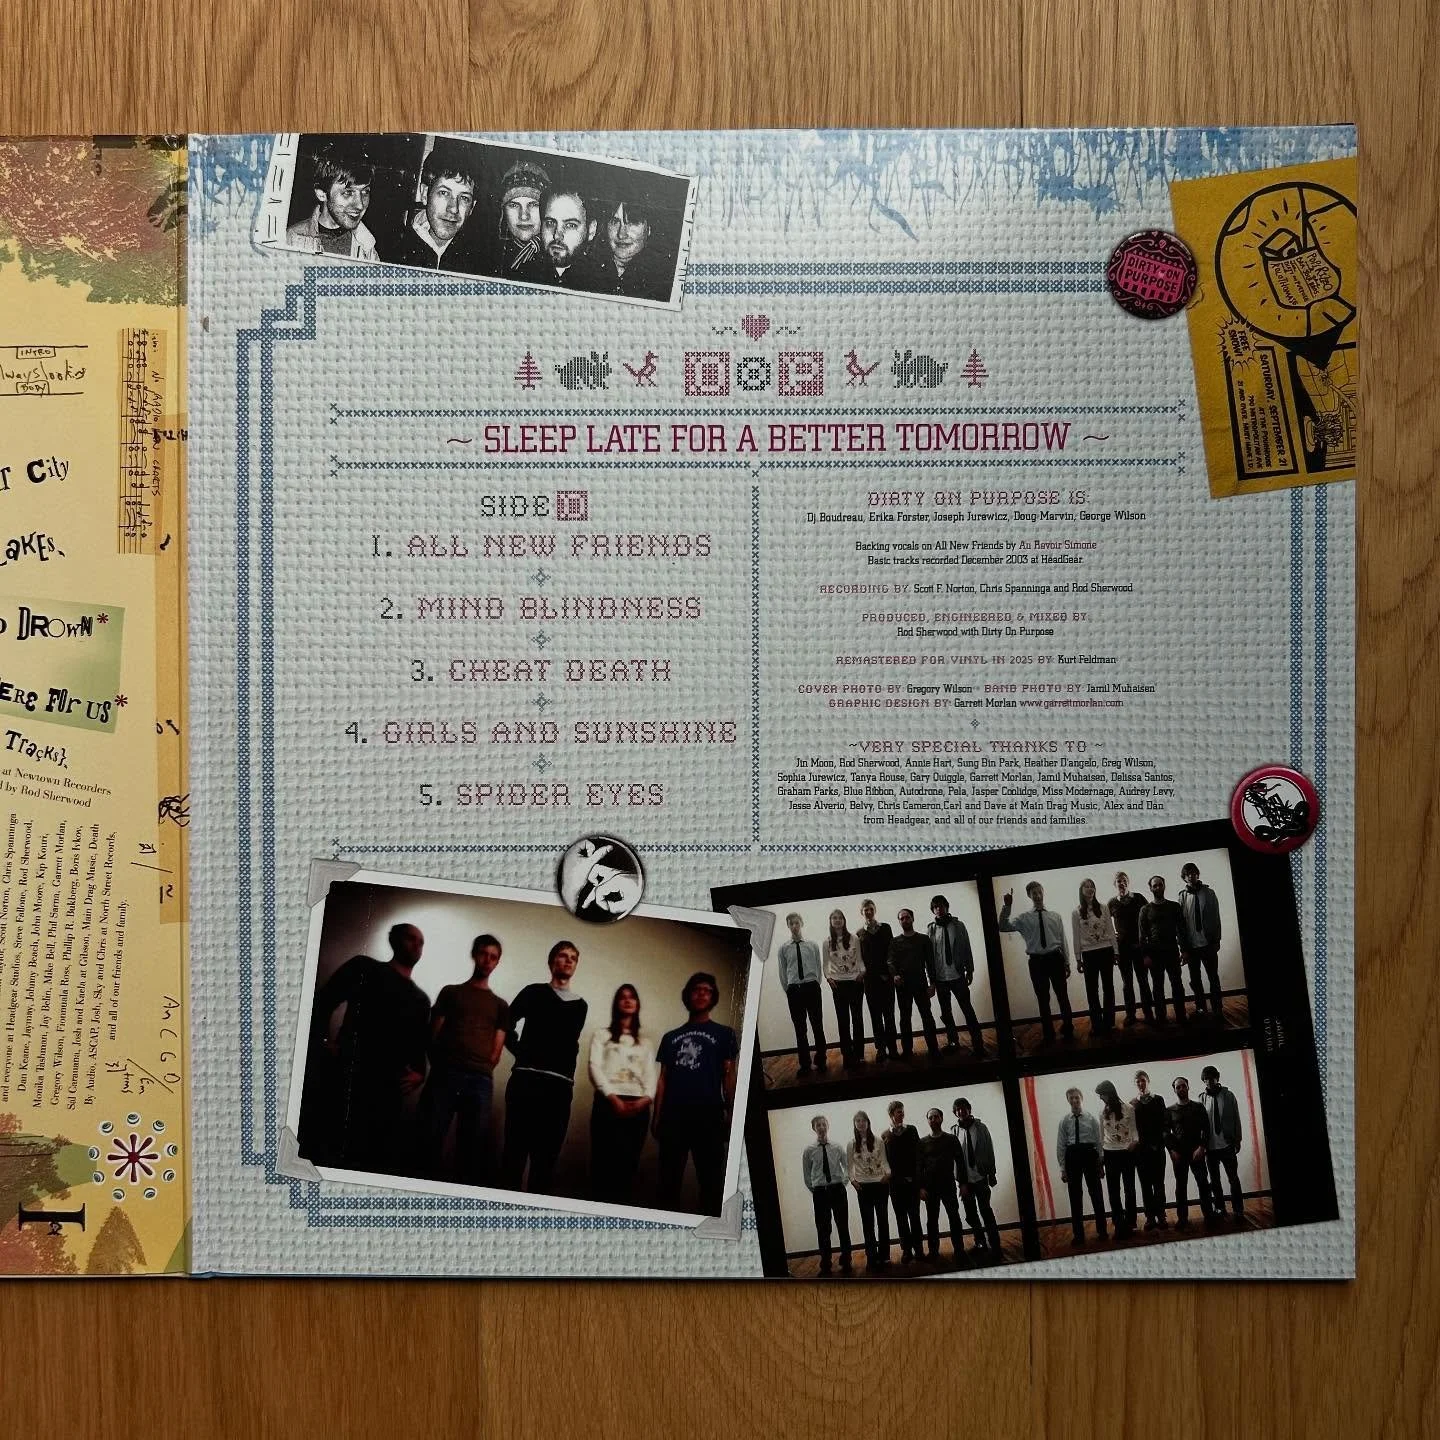 INTRO
BODY
City
DROWN*
FOR US*
Tracks}
at Newtown Recorders
d by Rod Sherwood
and everyone at Headgear Studios, Steve Fallone, Rod Sherwood,
Dan Keane, Jaymay, Johnny Beach, John Moore, Kip Kouri,
Monika Tashman, Jay Belin, Mike Bell, Phil Sarna, Garrett Morlan,
By Audio, ASCAP, Josh, Sky and Chris at North Street Records,
and all of our friends and family.
DIRTY ON
PURPOSE
FREE
SHOW!
SATURDAY, SEPTEMBER 27
~ SLEEP LATE FOR A BETTER TOMORROW ~
SIDE
1. ALL NEW FRIENDS
2. MIND BLINDNESS
3. CHEAT DEATH
4. GIRLS AND SUNSHINE
5. SPIDER EYES
DIRTY ON PURPOSE IS:
DJ Boudreau, Erika Forster, Joseph Jurewicz, Doug Marvin, George Wilson
Backing vocals on All New Friends by Au Revoir Simone
Basic tracks recorded December 2003 at HeadGear
RECORDING BY Scott F. Norton, Chris Spanninga and Rod Sherwood
PRODUCED, ENGINEERED & MIXED BY:
Rod Sherwood with Dirty On Purpose
REMASTERED FOR VINYL IN 2025 BY: Kurt Feldman
COVER PHOTO BY Gregory Wilson · BAND PHOTO BY Jamil Muhaisen
GRAPHIC DESIGN BY: Garrett Morlan www.garrettmorlan.com
~VERY SPECIAL THANKS TO ~
Jin Moon, Rod Sherwood, Annie Hart, Sung Bin Park, Heather D'angelo, Greg Wilson,
Sophia Jurewicz, Tanya Rouse, Gary Quiggle, Garrett Morlan, Jamil Muhaisen, Delissa Santos,
Graham Parks, Blue Ribbon, Autodrone, Pela, Jasper Coolidge, Miss Modernage, Audrey Levy,
Jesse Alverio, Belvy, Chris Cameron,Carl and Dave at Main Drag Music, Alex and Dan
from Headgear, and all of our friends and families.